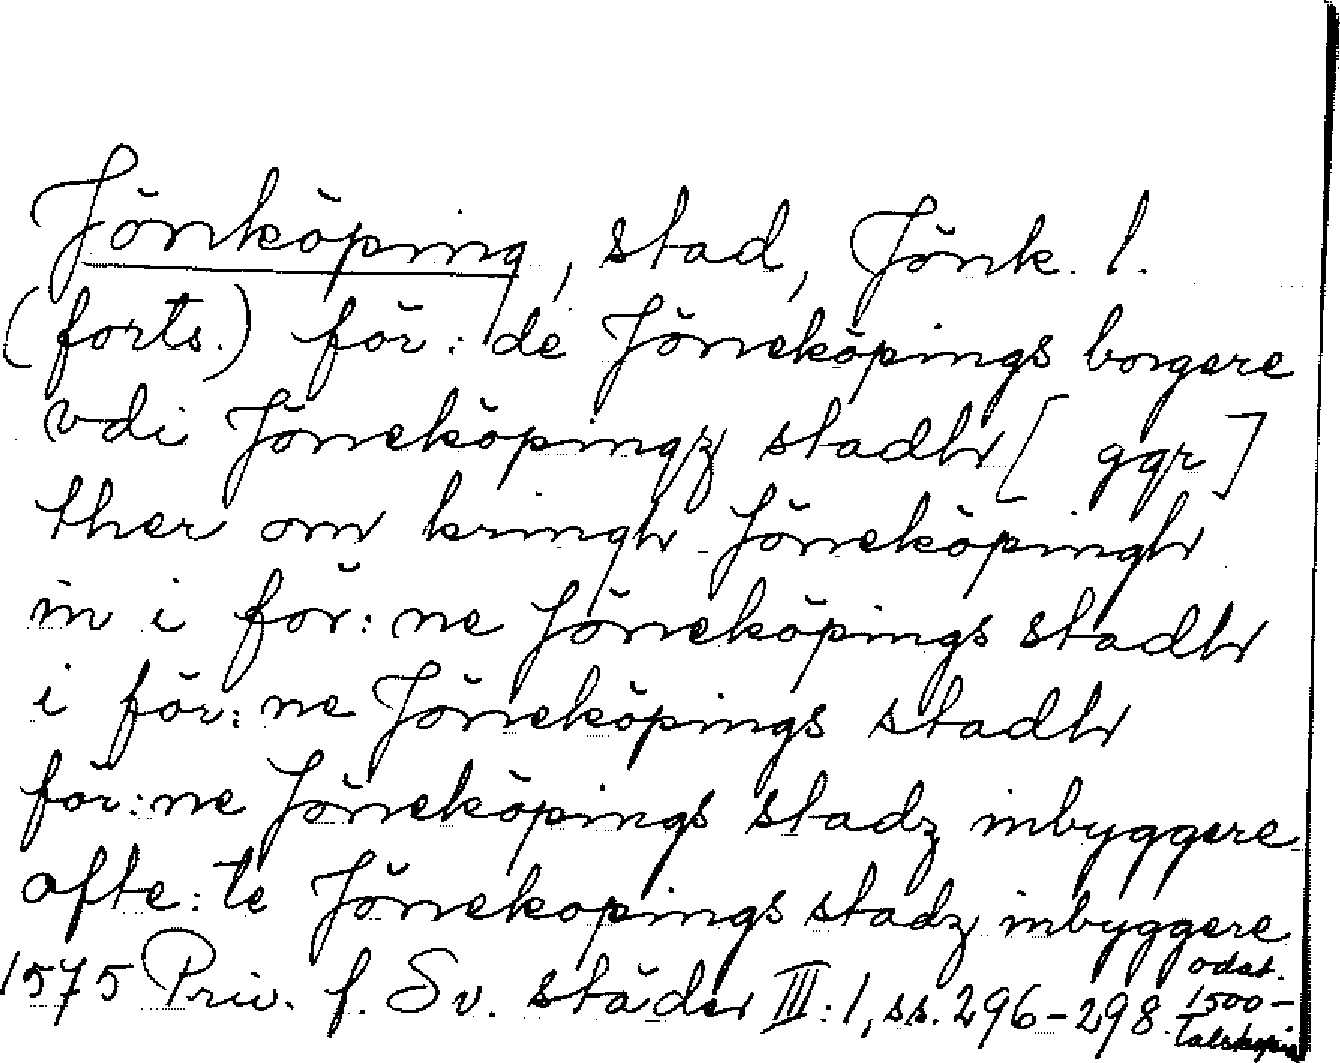 Jönköping, stad, Jönk. l.
(forts.) för: de Jöneköpings borgere
vdi Jöneköpingz stadh [ ggr ]
ther om kringh Jöneköpingh
in i för: ne Jöneköpings stadh
i för: ne Jöneköpings stadh
för: ne Jöneköpings stadz inbyggere
ofte: te Jönekopings stadz inbyggere
1575 Priv. f. Sv. städer III: 1, ss. 296-298. odat.
1500-
talskopia